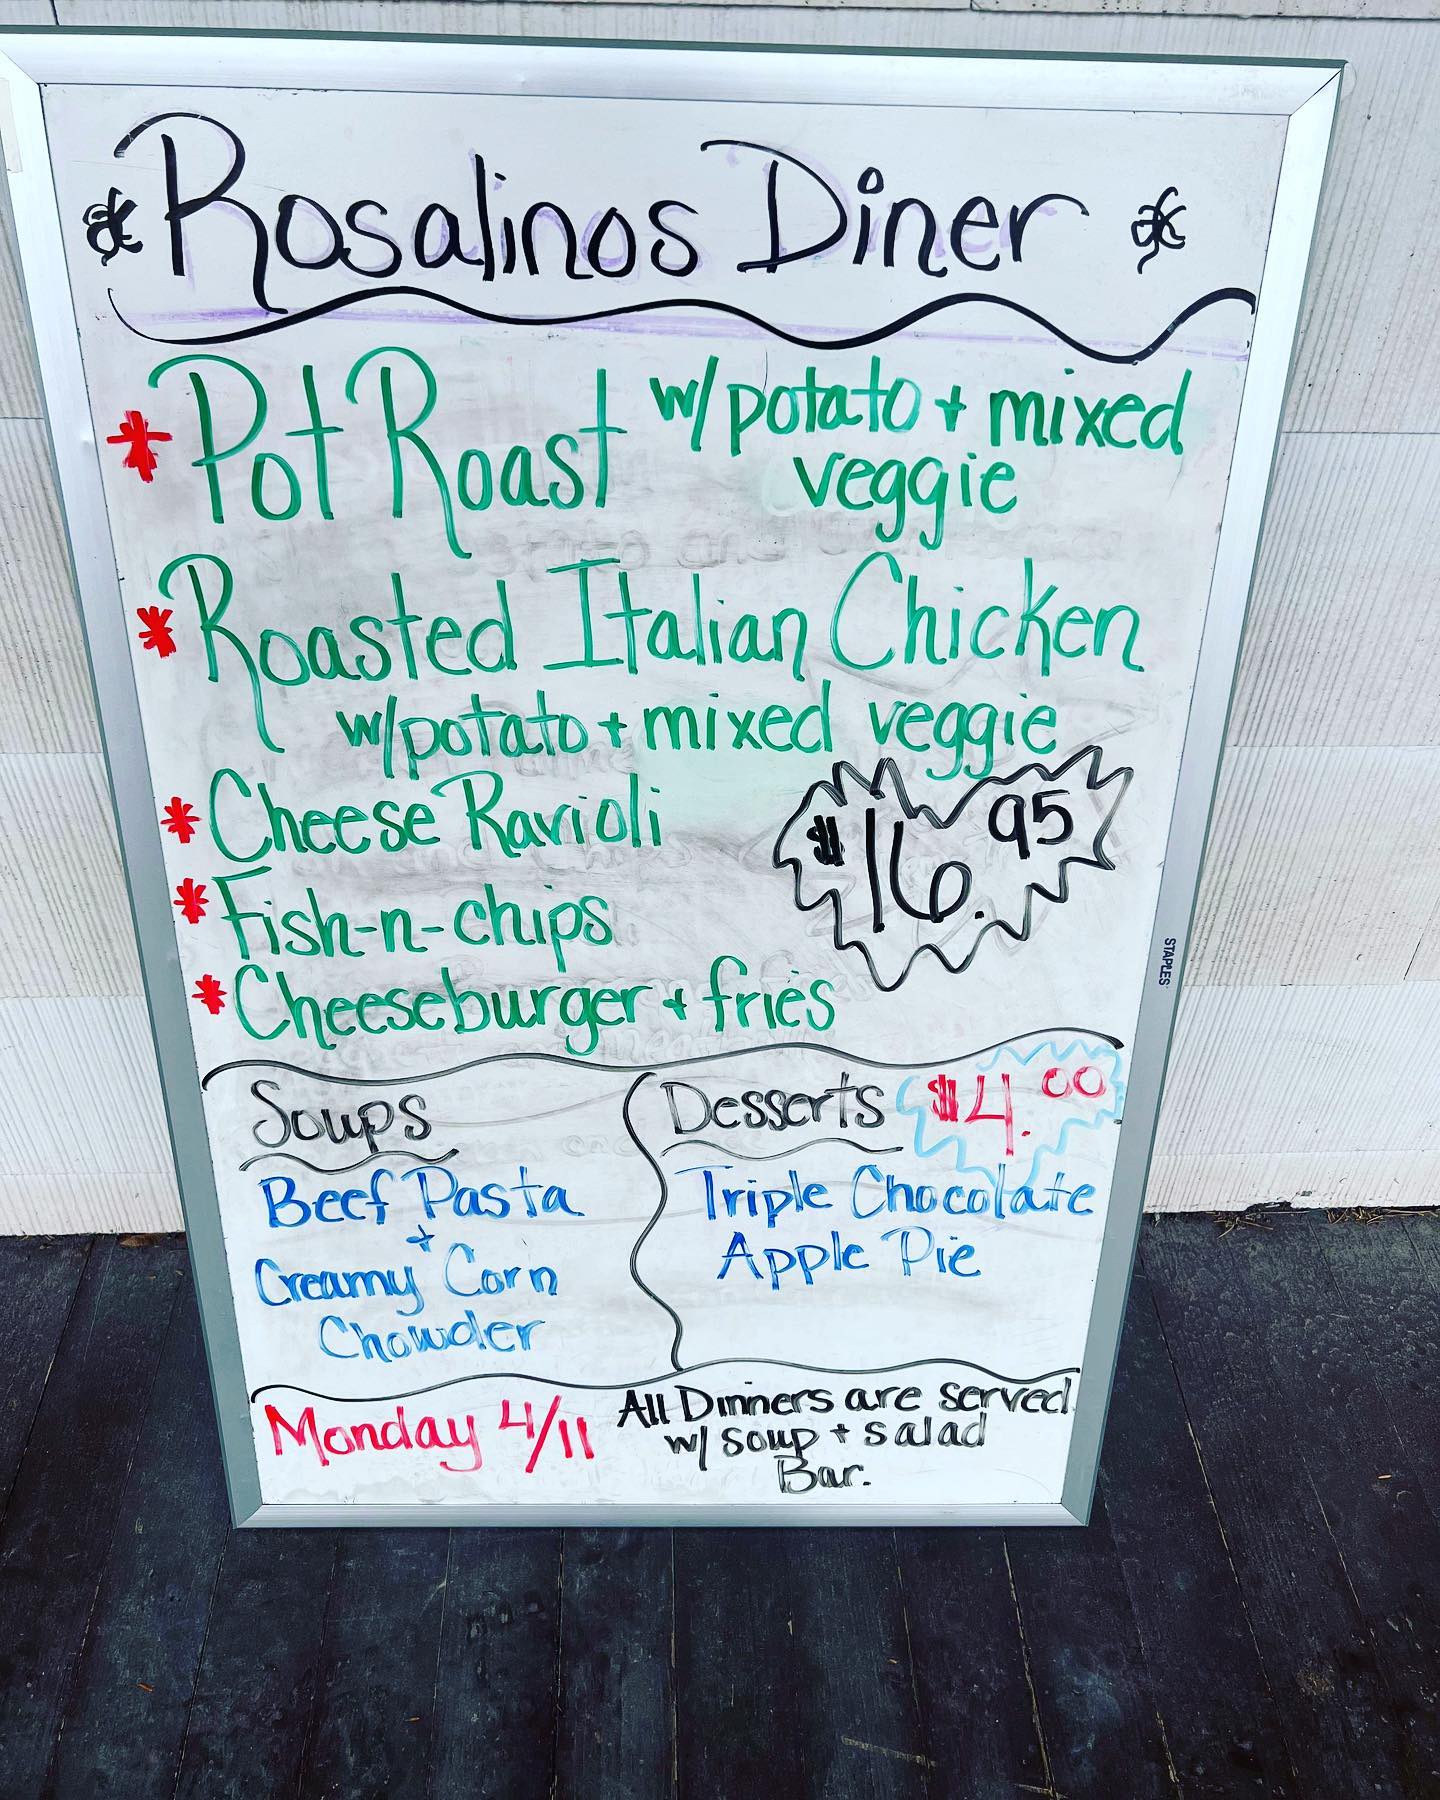 Rosalinos Diner
* Pot Roast w/potato + mixed
veggie
* Roasted Italian Chicken
w/potato + mixed veggie
* Cheese Ravioli
$16.95
* Fish-n-chips
* Cheeseburger + fries
Soups
Beef Pasta
+
Creamy Corn
Chowder
Desserts $4.00
Triple Chocolate
Apple Pie
Monday 4/11
All Dinners are served
w/ soup + salad
Bar.
STAPLES